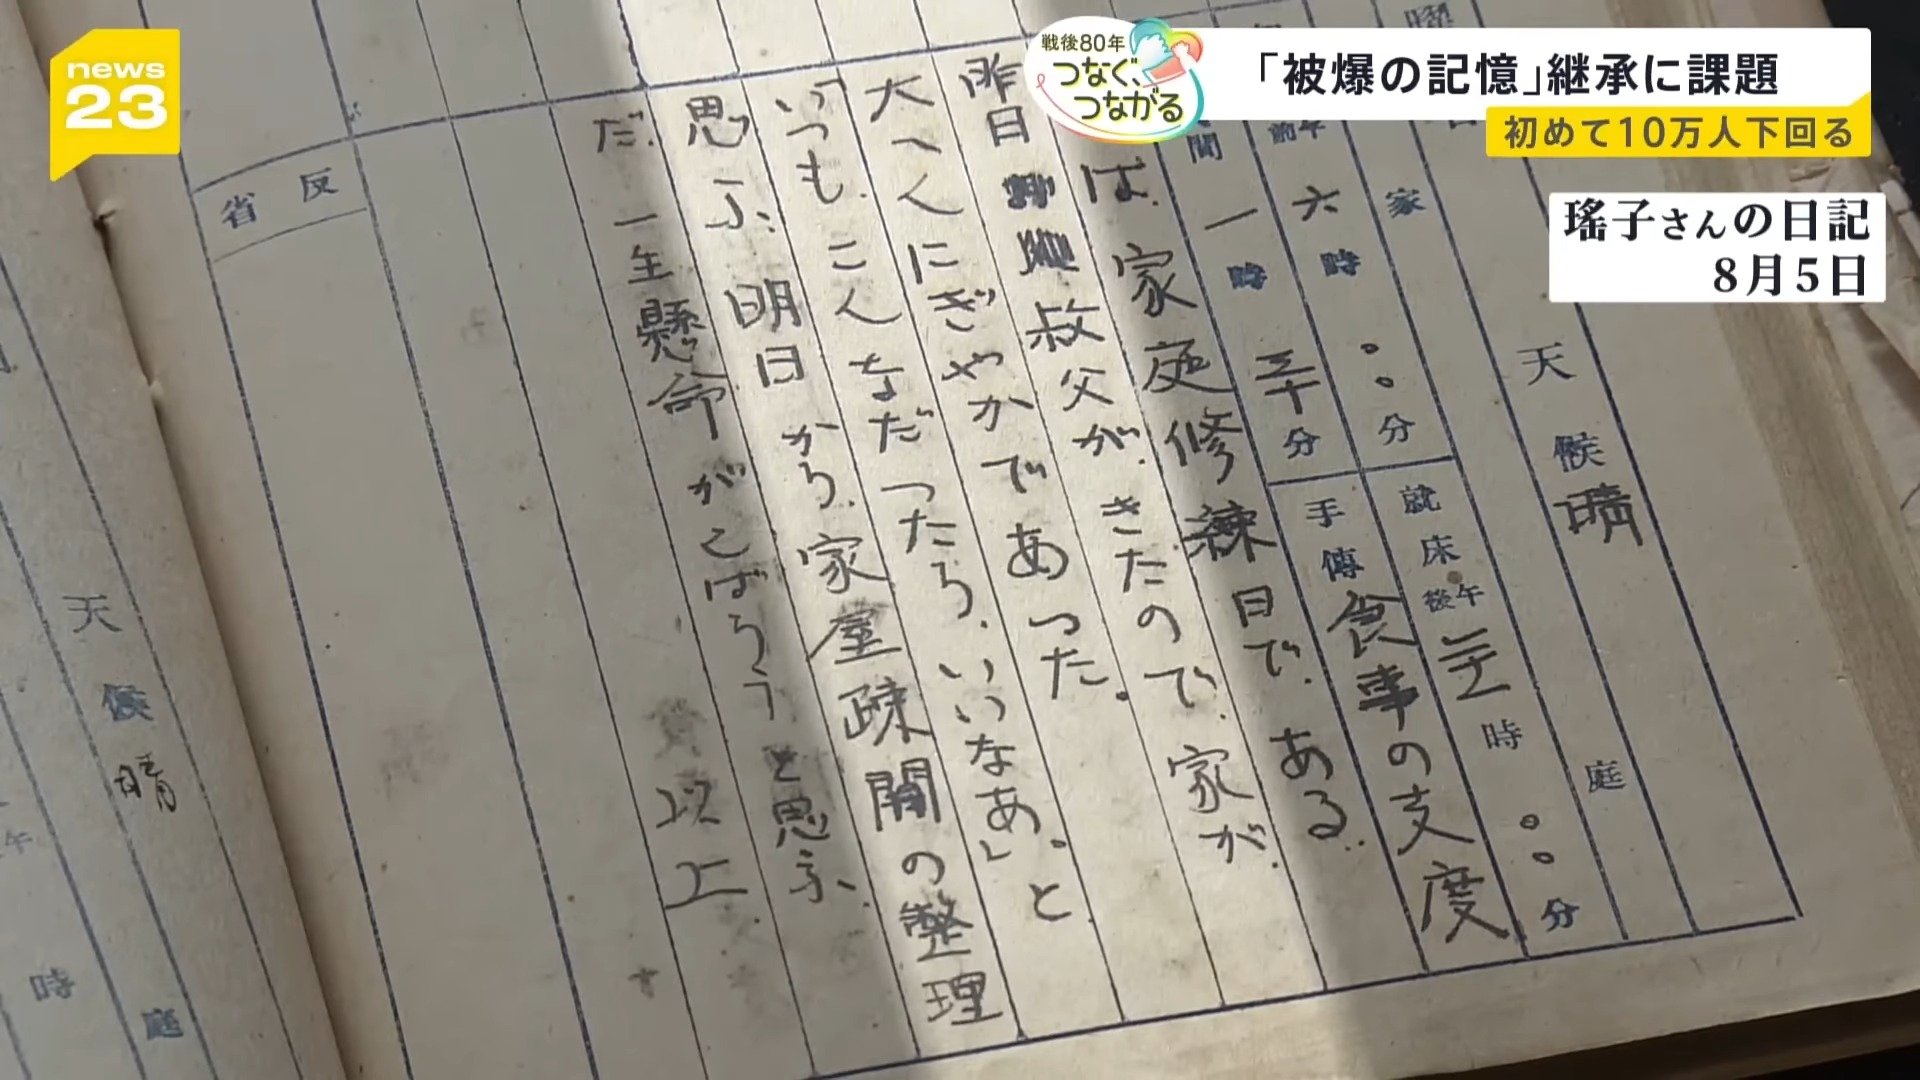 news
23
戦後80年
つなぐ、
つながる
「被爆の記憶」継承に課題
初めて10万人下回る
瑤子さんの日記
8月5日
天候 晴
家 庭
六時〇〇分
就床 午後 時〇〇分
一時 三十分
手傳 食事の支度
は、家庭修練日で、ある。
昨日 叔父が、きたので、家が、
大へんにぎやかであった。
「いつも、こんなだったら、いいなあ」。と
思ふ、明日から、家屋疎開の整理
だ、一生懸命がんばらうと思ふ、
以上
反省
天候 晴
時
庭